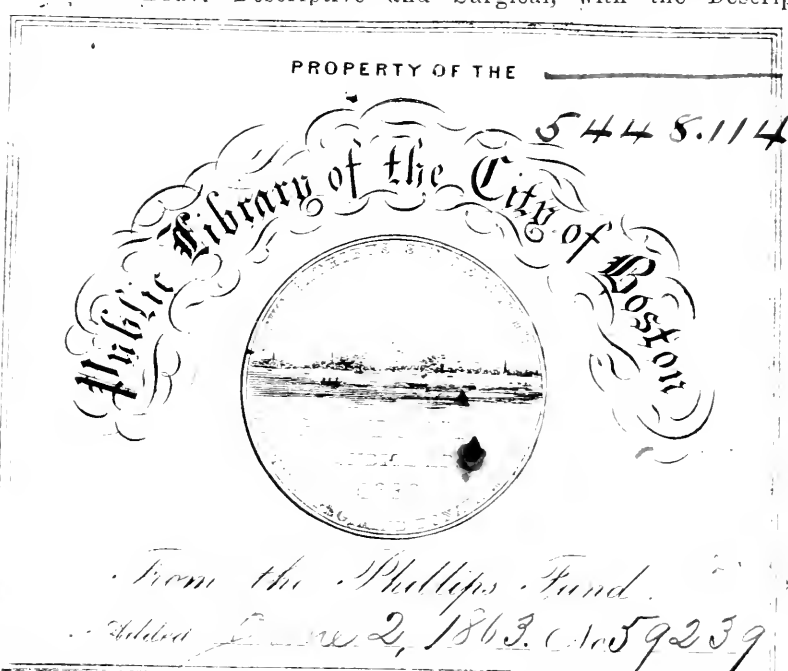 Descriptive and Surgical, with the Descrip
PROPERTY OF THE
5448.114
Public Library of the City of Boston
From the Phillips Fund.
Added June 2, 1863. No 59239